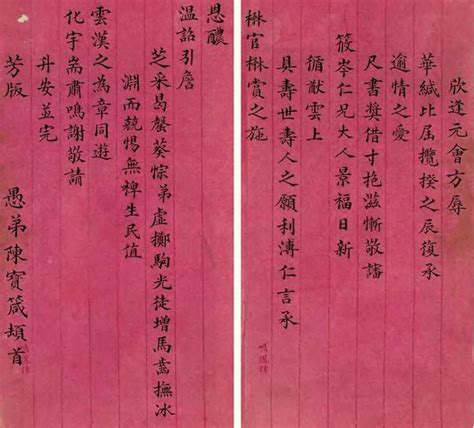 欣逢元會方辱
華緘比屆攬揆之辰復承
逾情之愛
尺書獎借寸抱滋慚敬讅
筱岑仁兄大人景福日新
循猷雲上
具壽世壽人之願利溥仁言承
楙官楙賞之施
恩醲
温詔引詹
芝采曷罄葵悰弟虛擲駒光徒增馬齒撫冰
淵而兢惕無裨生民值
雲漢之為章同遊
化宇耑肅鳴謝敬請
升安並完
芳版
愚弟陳寶箴頓首